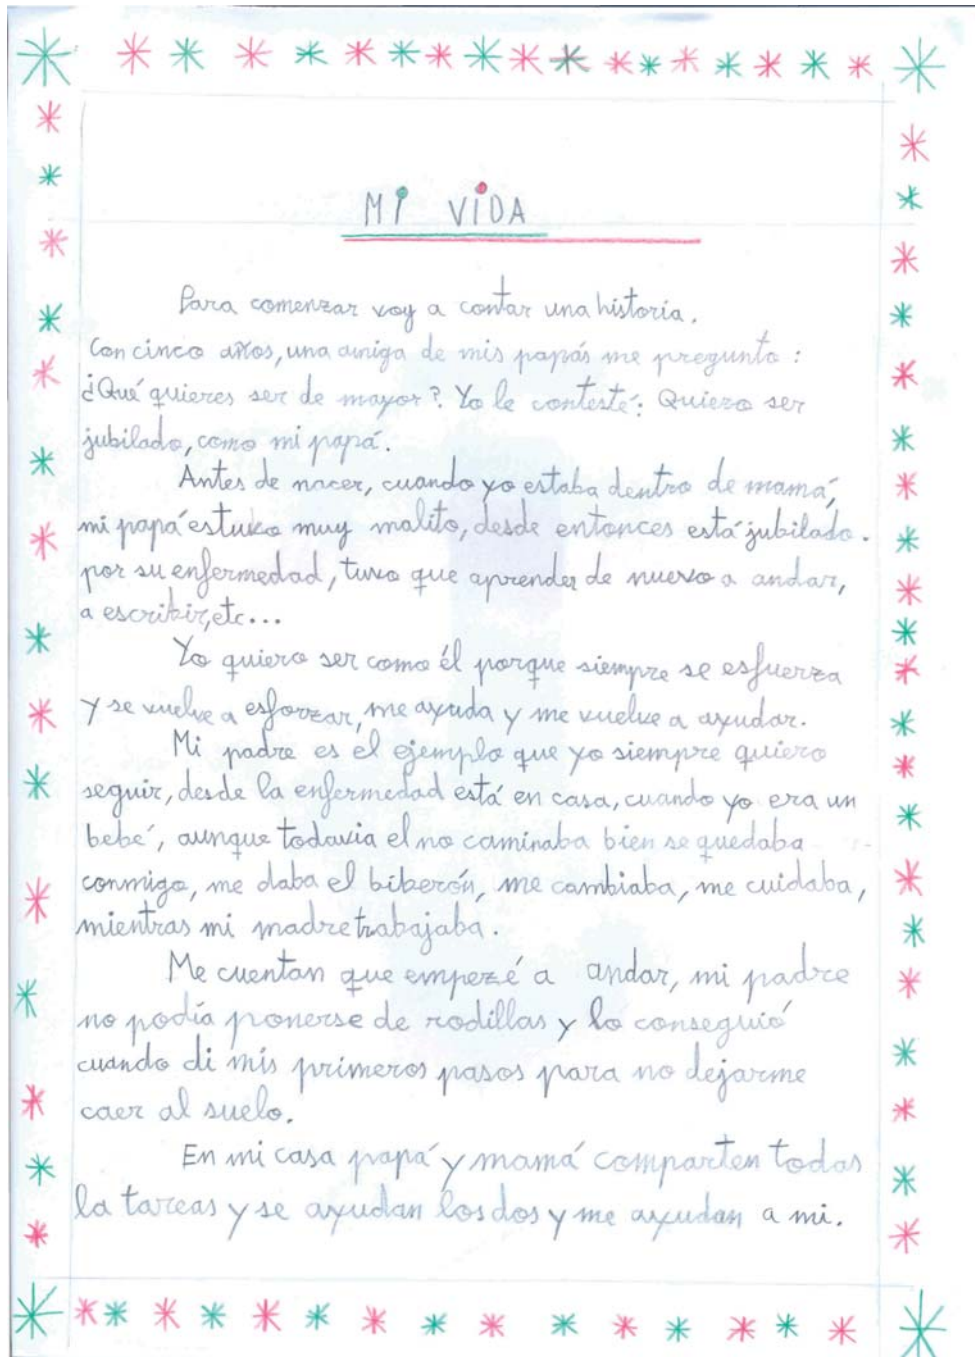 MI VIDA
Para comenzar voy a contar una historia.
Con cinco años, una amiga de mis papás me pregunto :
¿Qué quieres ser de mayor?. Yo le contesté: Quiero ser
jubilado, como mi papá.
Antes de nacer, cuando yo estaba dentro de mamá,
mi papá estuvo muy malito, desde entonces está jubilado.
por su enfermedad, tuvo que aprender de nuevo a andar,
a escribir, etc...
Yo quiero ser como él porque siempre se esfuerza
y se vuelve a esforzar, me ayuda y me vuelve a ayudar.
Mi padre es el ejemplo que yo siempre quiero
seguir, desde la enfermedad está en casa, cuando yo era un
bebé, aunque todavia el no caminaba bien se quedaba
conmigo, me daba el biberón, me cambiaba, me cuidaba,
mientras mi madre trabajaba.
Me cuentan que empezé a andar, mi padre
no podía ponerse de rodillas y lo conseguió
cuando di mis primeros pasos para no dejarme
caer al suelo.
En mi casa papá y mamá comparten todas
la tareas y se ayudan los dos y me ayudan a mi.